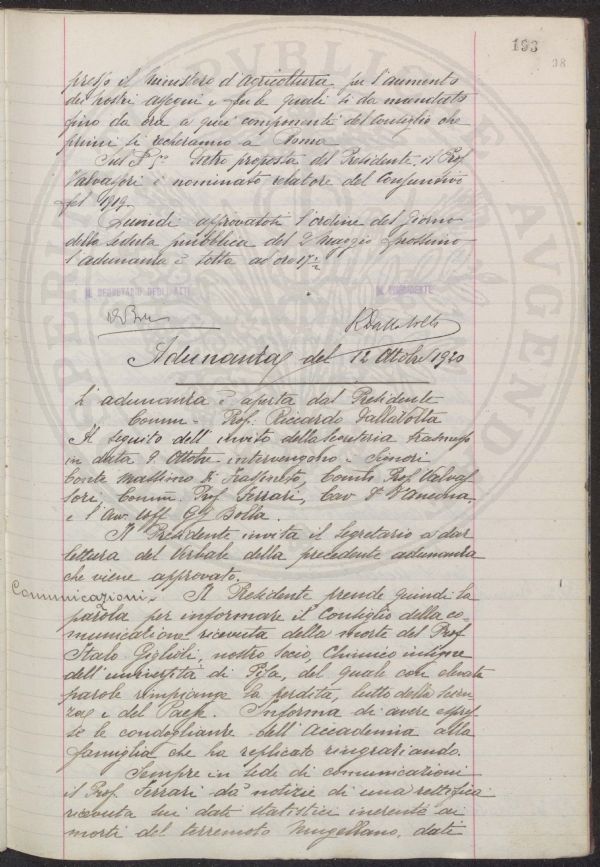 193
98
presso il Ministero d'Agricoltura per l'aumento
dei nostri assegni e per le quali si dà mandato
fino da ora a quei componenti del Consiglio che
primi si recheranno a Roma
Sul 5° Dietro proposta del Presidente, il Prof
Valvassori è nominato relatore del Consuntivo
pel 1919.
Quindi approvatosi l'ordine del Giorno
della seduta pubblica del 2 Maggio prossimo
l'adunanza è tolta ad ore 17 1/2
IL SEGRETARIO DEGLI ATTI
IL PRESIDENTE
R Dalla Volta
Adunanza del 12 Ottobre 1920
L'adunanza è aperta dal Presidente
Comm. Prof. Riccardo Dallavolta
In seguito dell'invito della Segreteria trasmesso
in data 9 Ottobre intervengono i Signori
Conte Massimo di Frassineto, Comm Prof Valvas
sori, Comm. Prof Ferrari, Cav D'Ancona,
e l'Avv. Uff Gg Bolla.
Il Presidente invita il Segretario a dar
lettura del Verbale della precedente adunanza
che viene approvato.
Comunicazioni. Il Presidente prende quindi la
parola per informare il Consiglio della co-
municazione ricevuta della morte del Prof
Italo Giglioli, nostro Socio, Chimico insigne
dell'università di Pisa, del quale con elevate
parole rimpiange la perdita, lutto della scien
za e del Paese. Informa di avere espres
se le condoglianze dell'Accademia alla
famiglia che ha replicato ringraziando.
Sempre in sede di comunicazioni
il Prof. Ferrari dà notizie di una rettifica
ricevuta sui dati statistici inerenti ai
morti del terremoto Mugellano, dati